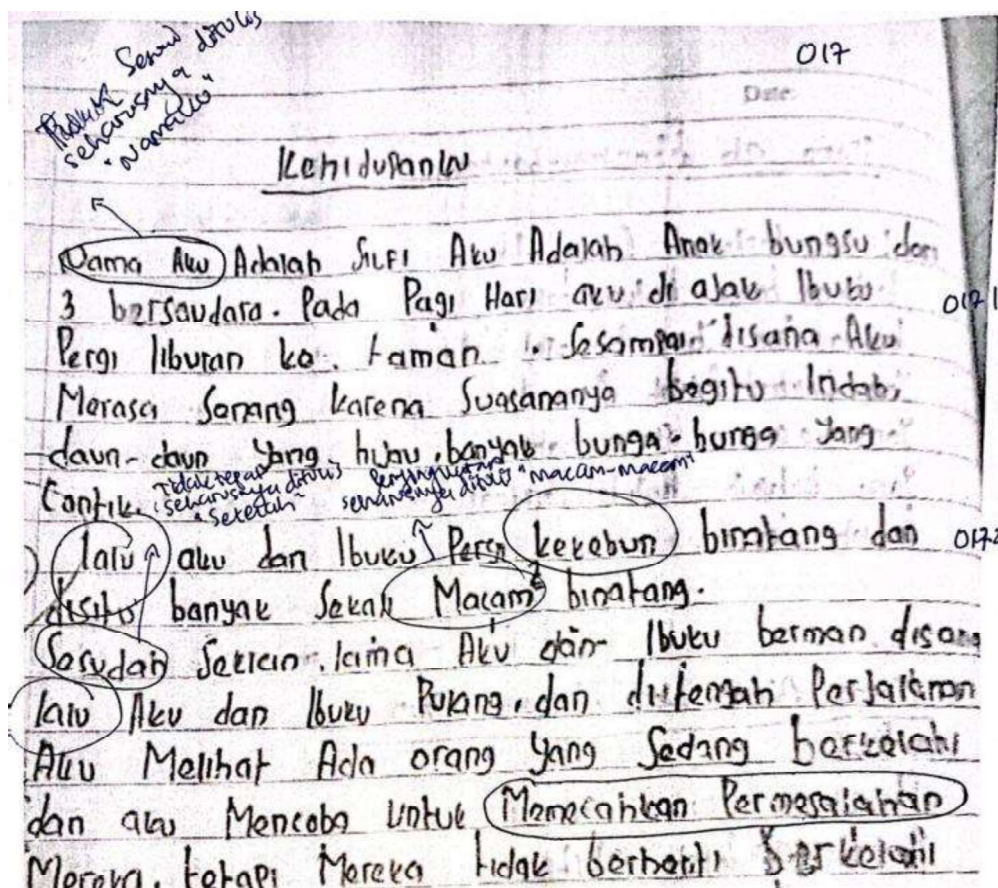 017
Date:
seharusnya ditulis
"Namaku"
Kehidupanku
Nama Aku Adalah Silfi Aku Adalah Anak bungsu dari
3 bersaudara. Pada Pagi Hari aku di ajak Ibuku
017 1
Pergi liburan ke. taman. Sesampai disana Aku
Merasa Senang karena Suasananya begitu Indah,
daun-daun yang hijau, banyak bunga-bunga yang
Cantik.
Tidak tepat
seharusnya ditulis
"Setelah"
Penyingkatan
seharusnya ditulis "macam-macam"
lalu aku dan Ibuku Pergi kekebun binatang dan
0172
disitu banyak Sekali Macam² binatang.
Sesudah Sekian lama Aku dan Ibuku bermain disana
lalu Aku dan Ibuku Pulang, dan ditengah Perjalanan
Aku Melihat Ada orang yang Sedang berkelahi
dan aku Mencoba untuk Memecahkan Permasalahan
Mereka, tetapi Mereka tidak berhenti berkelahi